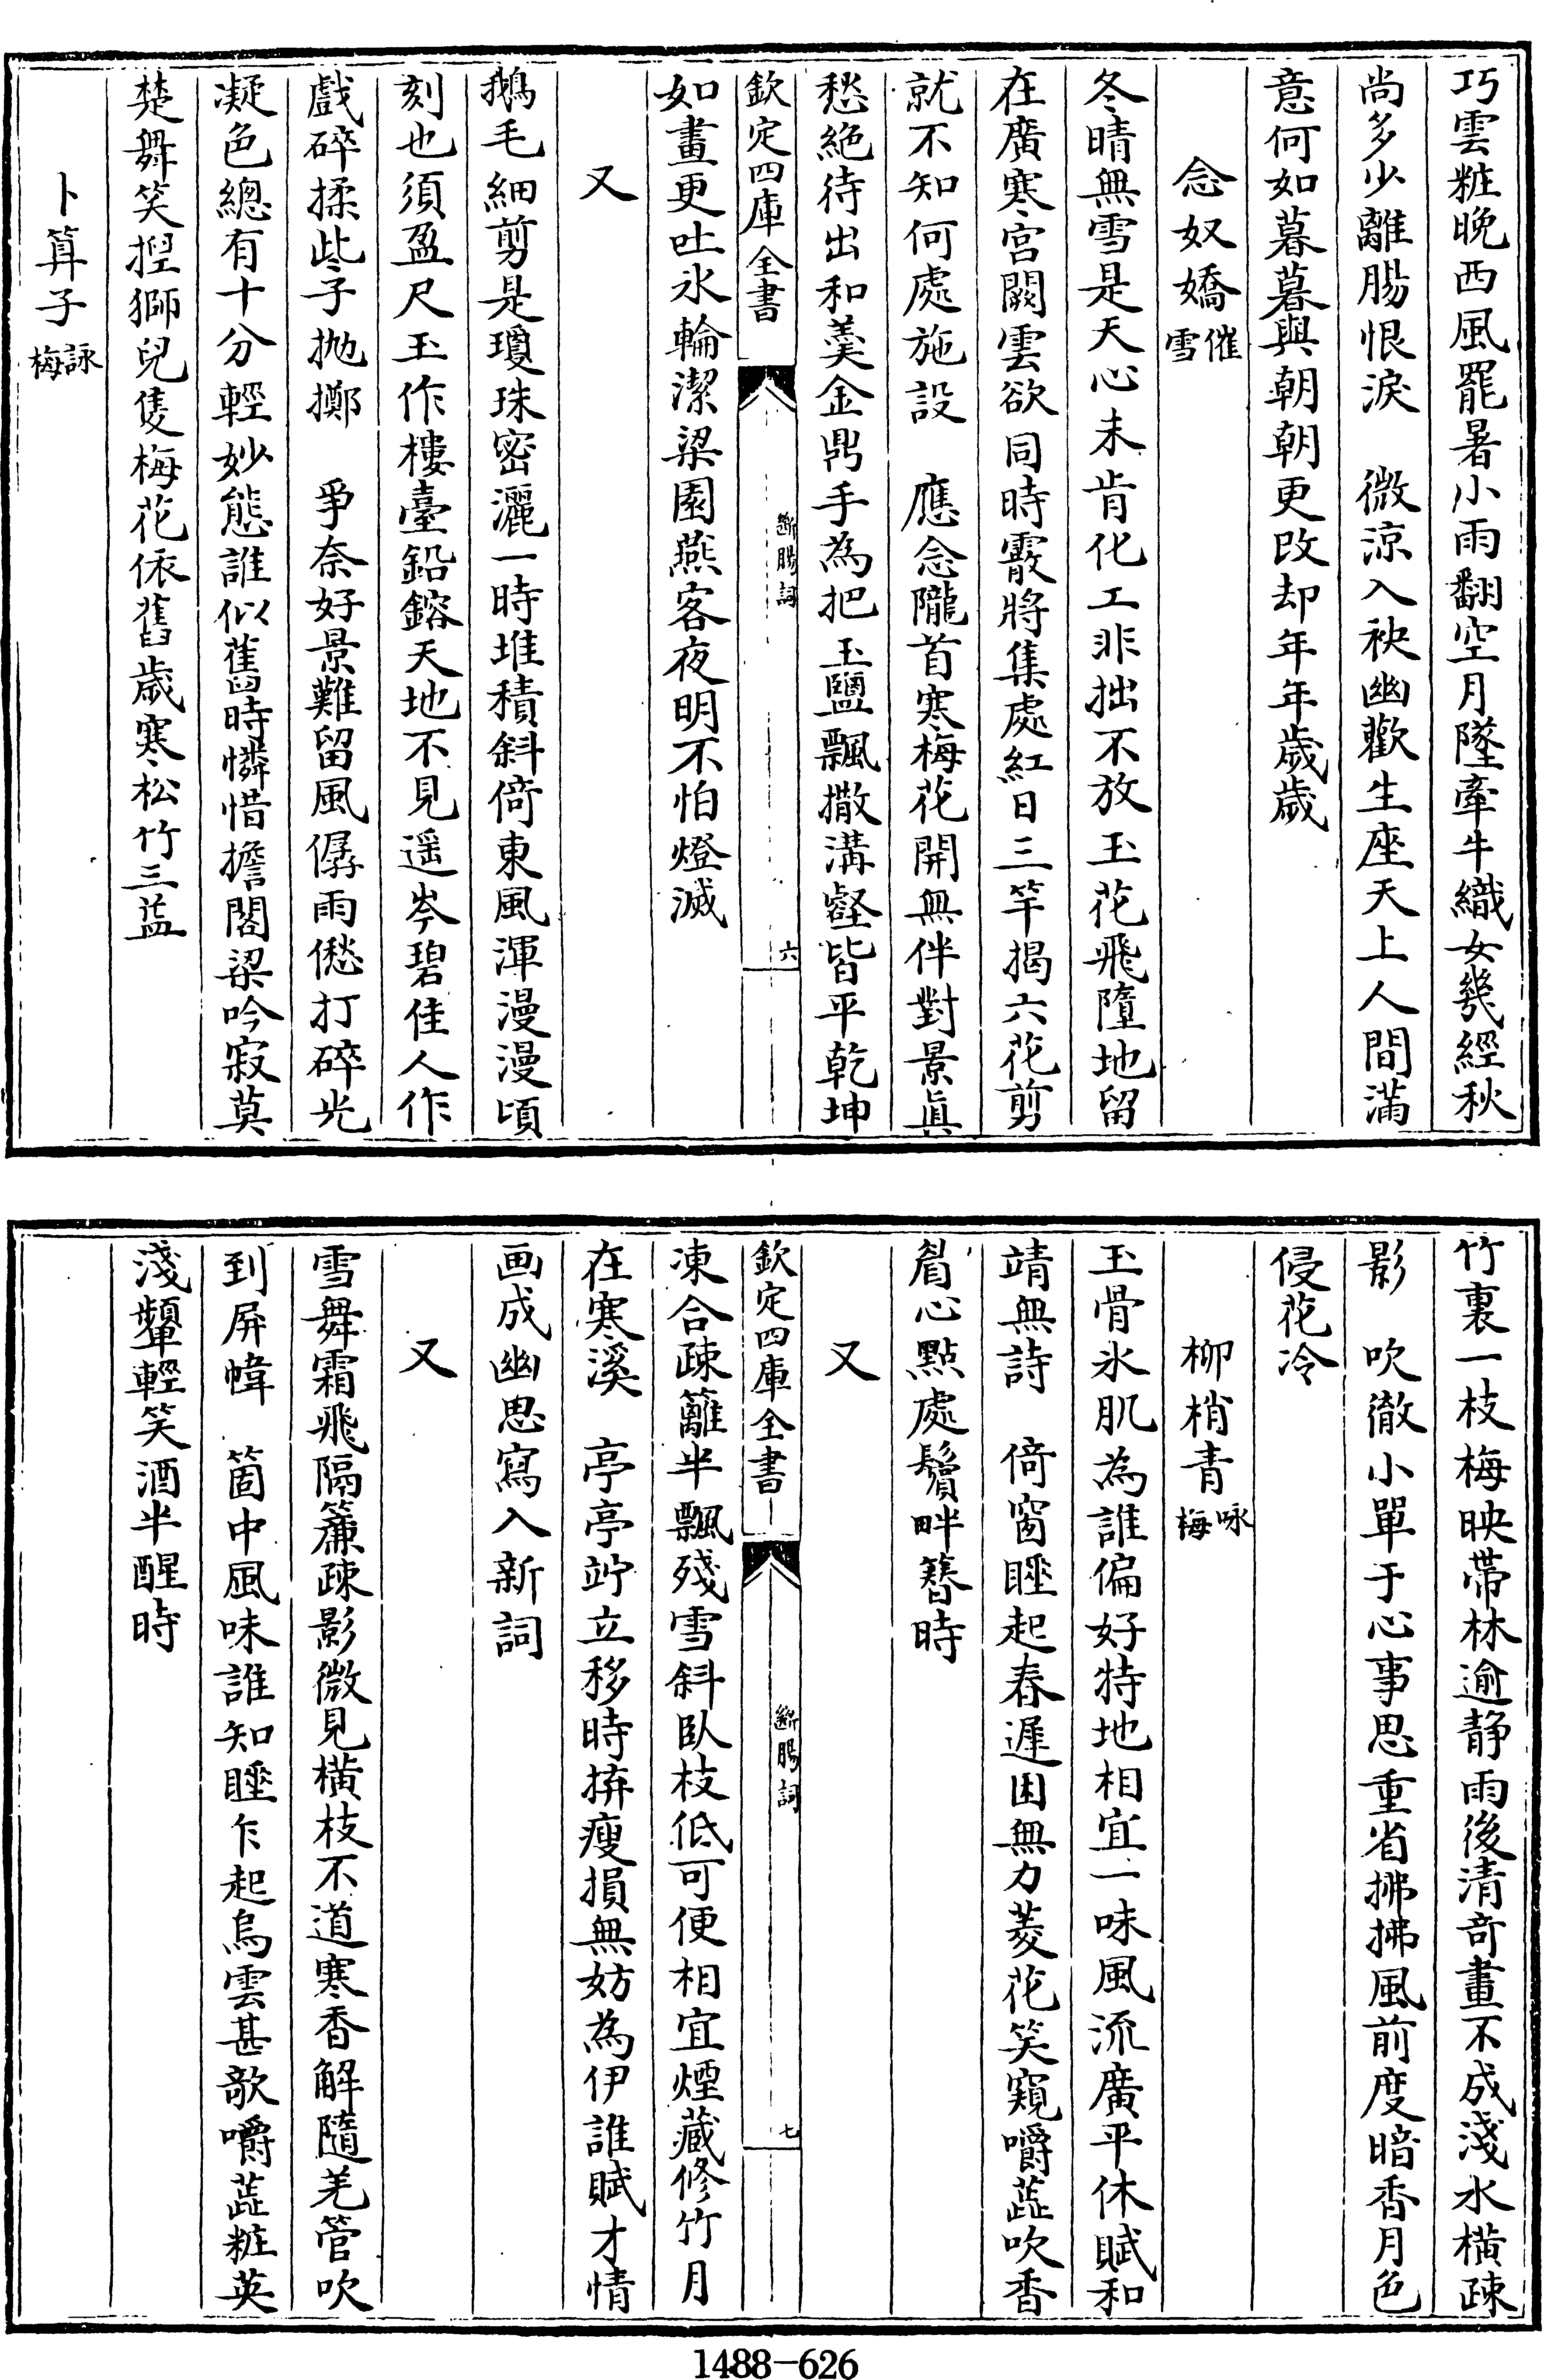 巧雲粧晚西風罷暑小雨翻空月墜牽牛織女幾經秋
尚多少離腸恨淚　微涼入袂幽歡生座天上人間滿
意何如暮暮與朝朝更改却年年歲歲
念奴嬌催雪
冬晴無雪是天心未肯化工非拙不放玉花飛墮地留
在廣寒宮闕雲欲同時霰將集處紅日三竿揭六花剪
就不知何處施設　應念隴首寒梅花開無伴對景真
愁絕待出和羹金鼎手為把玉鹽飄撒溝壑皆平乾坤
欽定四庫全書
斷腸詞
六
如畫更吐氷輪潔梁園燕客夜明不怕燈滅
又
鵝毛細剪是瓊珠密灑一時堆積斜倚東風渾漫漫頃
刻也須盈尺玉作樓臺鉛鎔天地不見遥岑碧佳人作
戲碎揉些子抛擲　爭奈好景難留風僝雨僽打碎光
凝色總有十分輕妙態誰似舊時憐惜擔閣梁吟寂莫
楚舞笑揑獅兒隻梅花依舊歲寒松竹三益
卜算子詠梅
竹裏一枝梅映帶林逾静雨後清奇畫不成淺水橫疎
影　吹徹小單于心事思重省拂拂風前度暗香月色
侵花冷
柳梢青咏梅
玉骨氷肌為誰偏好特地相宜一味風流廣平休賦和
靖無詩　倚窗睡起春遲困無力菱花笑窺嚼蕋吹香
眉心點處鬢畔簪時
又
欽定四庫全書
斷腸詞
七
凍合疎籬半飄殘雪斜臥枝低可便相宜煙藏修竹月
在寒溪　亭亭竚立移時拚瘦損無妨為伊誰賦才情
画成幽思寫入新詞
又
雪舞霜飛隔簾疎影微見橫枝不道寒香解隨羌管吹
到屏幃　箇中風味誰知睡乍起烏雲甚欹嚼蕋粧英
淺顰輕笑酒半醒時
1488-626